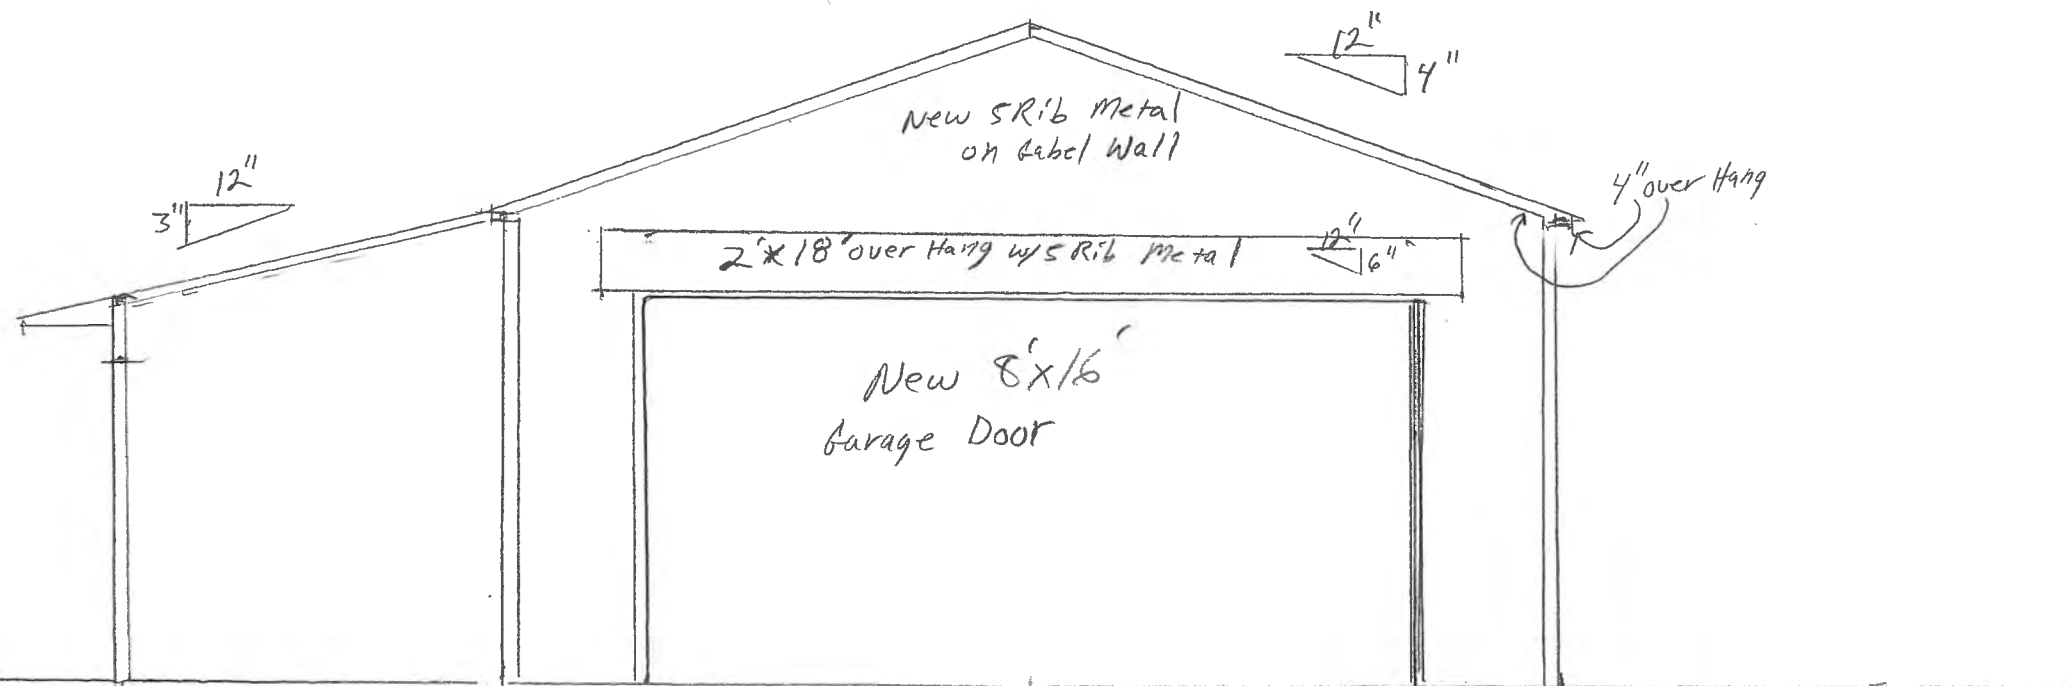 12"
4"
New 5Rib Metal
on Gabel Wall
4" over Hang
12"
3"
2'x18' over Hang w/5 Rib Metal
12"
6"
New 8'x16'
Garage Door